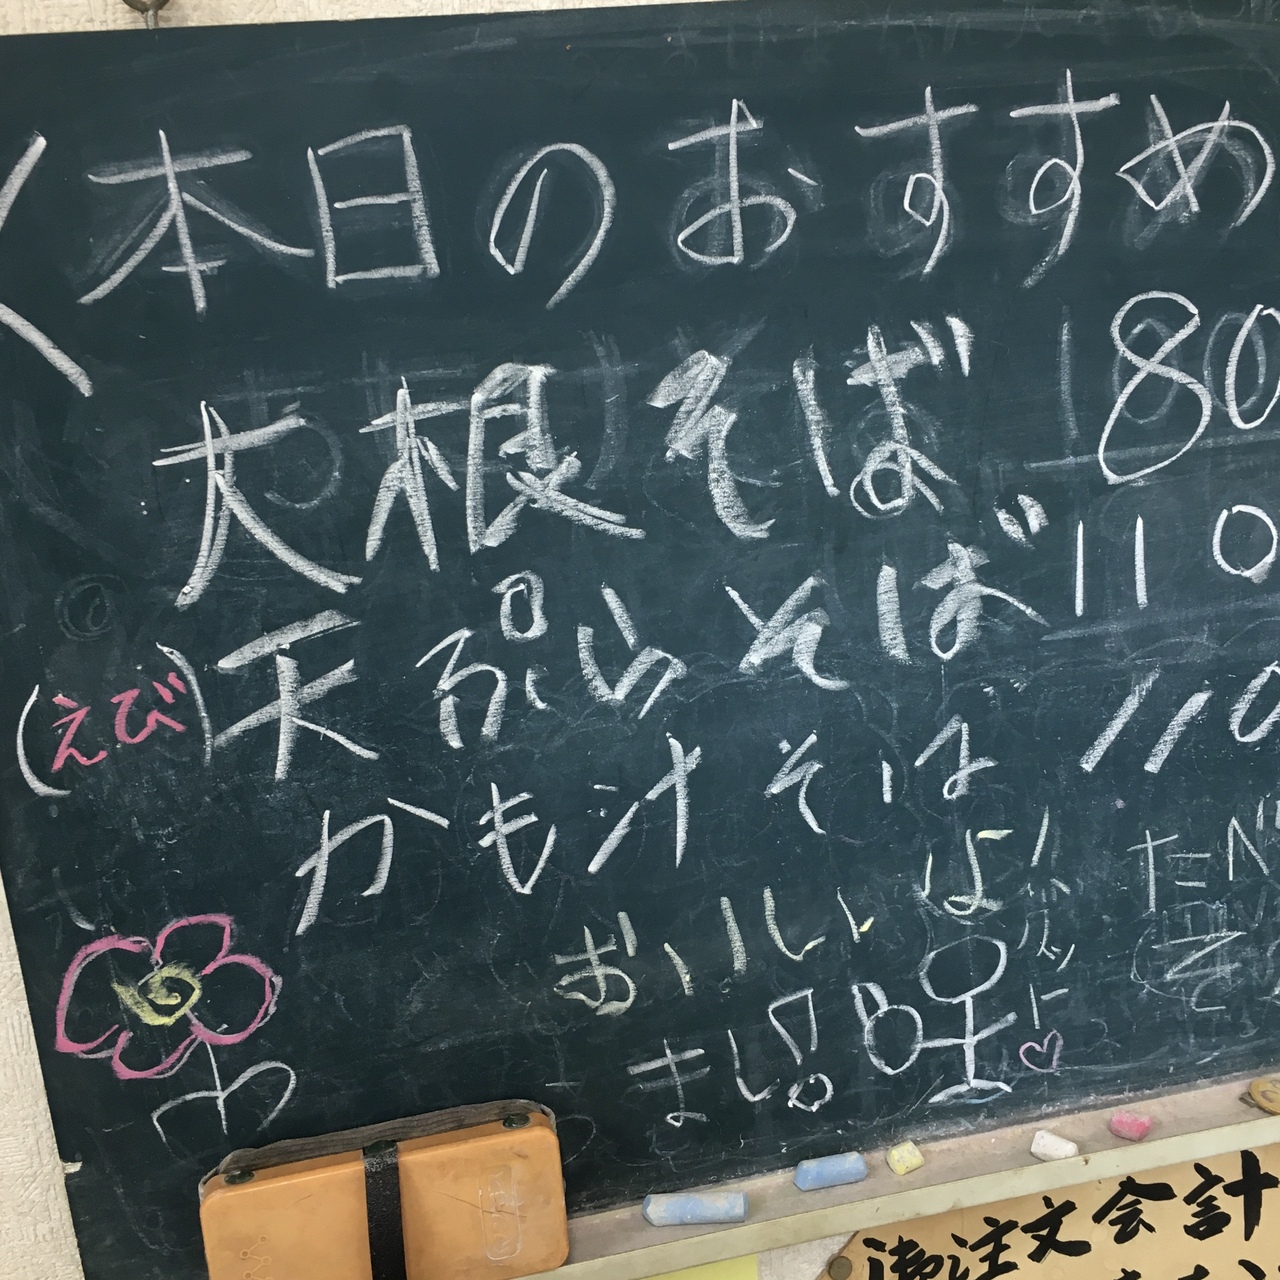 <本日のおすすめ
大根そば 80
天ぷらそば 110
(えび)
かも汁そば 110
おいしいよ
たべ
まし
御注文会計